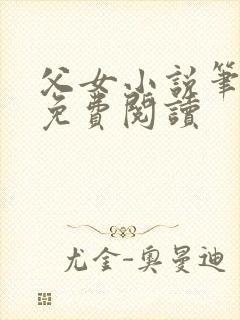 父女小說筆
免費閱讀
尤金-奧曼迪